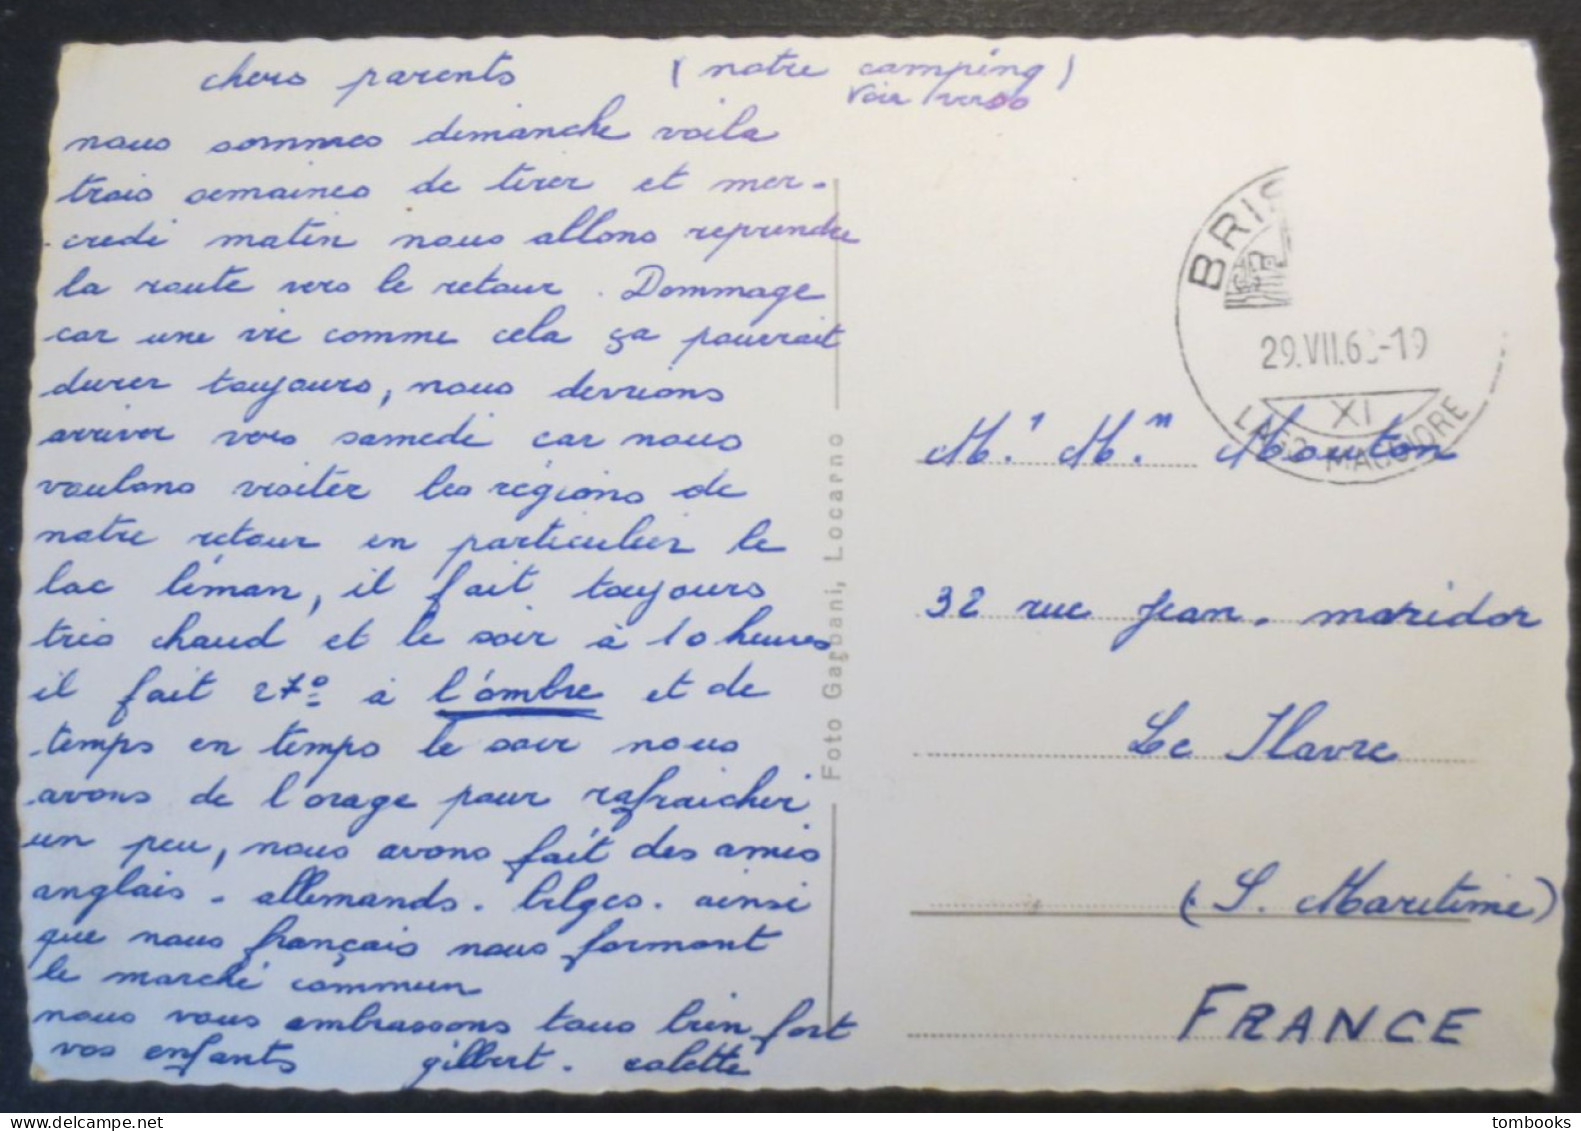 chers parents (notre camping)
voir verso
nous sommes dimanche voila
trois semaines de tirer et mer-
credi matin nous allons reprendre
la route vers le retour. Dommage
car une vie comme cela ça pourrait
durer toujours, nous devrions
arriver vers samedi car nous
voulons visiter les régions de
notre retour en particulier le
lac léman, il fait toujours
très chaud et le soir à 10 heures
il fait 27° à l'ombre et de
temps en temps le soir nous
avons de l'orage pour rafraichir
un peu, nous avons fait des amis
anglais - allemands - belges - ainsi
que nous français nous formont
le marché commun
nous vous embrassons tous bien fort
vos enfants gilbert - colette
Foto Garbani, Locarno
BRIS
29.VII.6 -19
XI
LAGO MAGGIORE
M.r M.m Mouton
32 rue Jean - maridor
Le Havre
(S. Maritime)
FRANCE
www.delcampe.net
tombooks